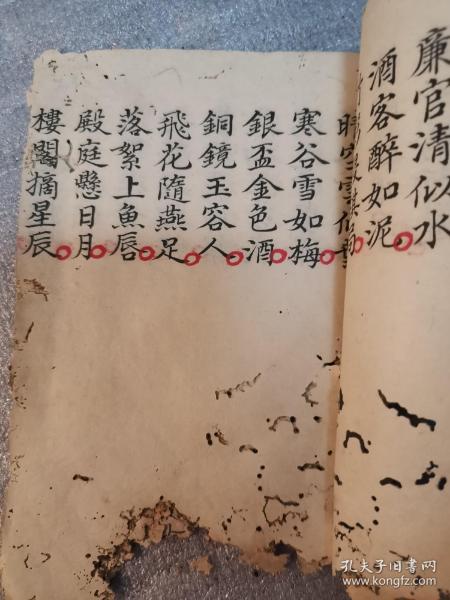 廉官清似水
酒客醉如泥
寒谷雪如梅
銀盃金色酒
銅鏡玉容人
飛花隨燕足
落絮上魚唇
殿庭懸日月
樓閣摘星辰
孔夫子旧书网
www.kongfz.com